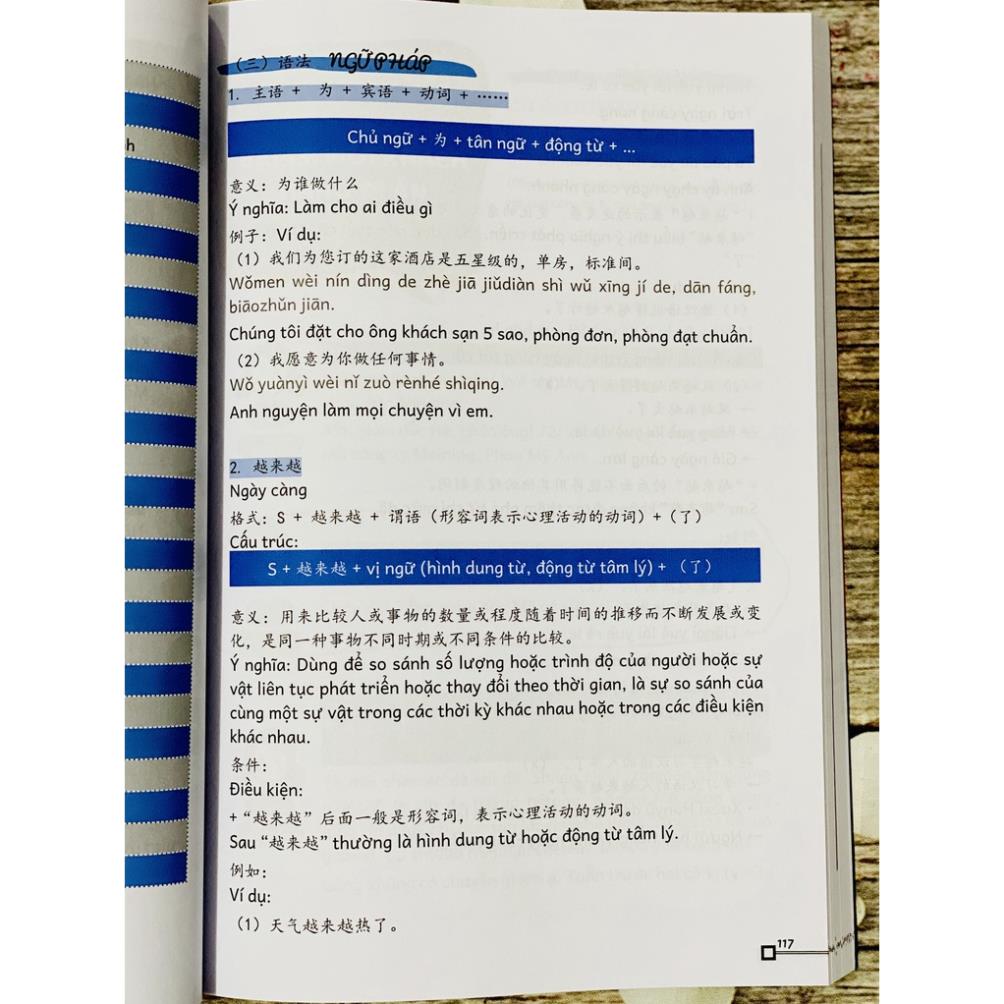 （三）语法 NGỮ PHÁP
1. 主语 + 为 + 宾语 + 动词 + ……
Chủ ngữ + 为 + tân ngữ + động từ + ...
意义：为谁做什么
Ý nghĩa: Làm cho ai điều gì
例子：Ví dụ:
（1）我们为您订的这家酒店是五星级的，单房，标准间。
Wǒmen wèi nín dìng de zhè jiā jiǔdiàn shì wǔ xīng jí de, dān fáng,
biāozhǔn jiān.
Chúng tôi đặt cho ông khách sạn 5 sao, phòng đơn, phòng đạt chuẩn.
（2）我愿意为你做任何事情。
Wǒ yuànyì wèi nǐ zuò rènhé shìqing.
Anh nguyện làm mọi chuyện vì em.
2. 越来越
Ngày càng
格式：S + 越来越 + 谓语（形容词表示心理活动的动词）+（了）
Cấu trúc:
S + 越来越 + vị ngữ (hình dung từ, động từ tâm lý) + （了）
意义：用来比较人或事物的数量或程度随着时间的推移而不断发展或变
化，是同一种事物不同时期或不同条件的比较。
Ý nghĩa: Dùng để so sánh số lượng hoặc trình độ của người hoặc sự
vật liên tục phát triển hoặc thay đổi theo thời gian, là sự so sánh của
cùng một sự vật trong các thời kỳ khác nhau hoặc trong các điều kiện
khác nhau.
条件：
Điều kiện:
+“越来越”后面一般是形容词，表示心理活动的动词。
Sau “越来越” thường là hình dung từ hoặc động từ tâm lý.
例如：
Ví dụ:
（1）天气越来越热了。
117